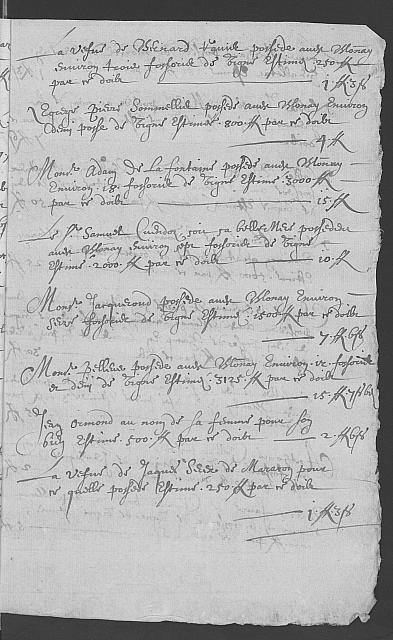 La vefve de Bernard possede audt Monay
environ trois fossorier de vigne Estimé 250 ff
par ce doibt
1 ff 3 s
Egrege Pierre Sommellie possede audt Monay Environ
demi pose de vigne Estimée 800 ff par ce doibt
4 ff
Monsr Adam de La fontaine possede audt Monay
Environ 18 fossorier de vigne Estime 3000 ff
par ce doibt
15 ff
Le Sr Samuel ou sa belle Mere possedent
audt Monay environ fossorier de vigne
Estimé 2000 ff par ce doibt
10 ff
Monsr Jaquerond possede audt Monay Environ
seize fossorier de vigne Estimé 1500 ff par ce doibt
7 ff 6 s
Monsr possede audt Monay Environ fossorier
et demi de vigne Estimé 3125 ff par ce doibt
15 ff 7 s
Jean Ormond au nom de sa femme pour son
bien Estimé 500 ff par ce doibt
2 ff 6 s
La vefve de Jaques de pour
ce quelle possede Estimé 250 ff par ce doibt
1 ff 3 s